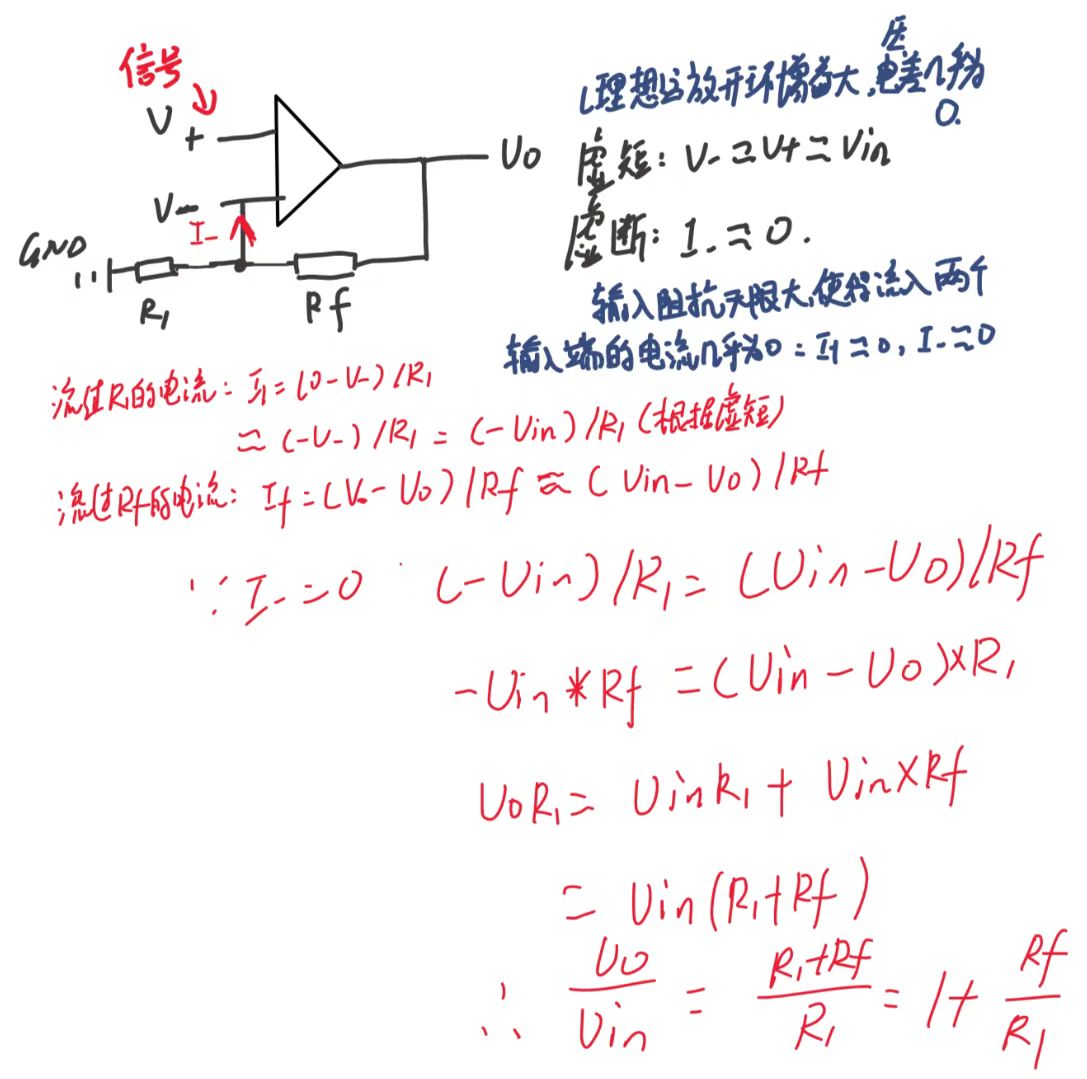 信号
V+
V-
I-
U0
GND
R1
Rf
理想运放开环增益大,电压差几乎为0.
虚短: V-≃V+≃Vin
虚断: I-≈0.
输入阻抗无限大,使得流入两个
输入端的电流几乎为0:I+≃0, I-≃0
流过R1的电流: I1=(0-V-)/R1
≃(-V-)/R1=(-Vin)/R1(根据虚短)
流过Rf的电流: If=(V--U0)/Rf≈(Uin-U0)/Rf
∵I-=0 (-Uin)/R1=(Uin-U0)/Rf
-Uin*Rf=(Uin-U0)×R1
U0R1=UinR1+Uin×Rf
=Uin(R1+Rf)
∴ U0/Uin = (R1+Rf)/R1 = 1+ Rf/R1